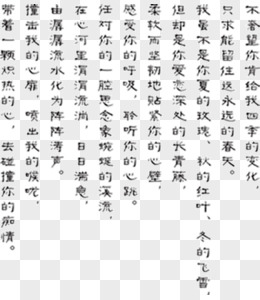 不奢望你肯给我四季的变化,
只求能留住这永远的春天。
我虽不是你夏的玫瑰、秋的红叶、冬的飞雪,
但却是你爱恋深处的长青藤,
柔软而坚韧地贴紧你的心壁,
感受你的呼吸,聆听你的心跳。
任对你的一腔思念象蜿蜒的溪流,
在心河里涓涓流淌,日日湍急,
由潺潺流水化为阵阵涛声。
撞击我的心扉,喷出我的喉咙,
带着一颗炽热的心,去碰撞你的痴情。